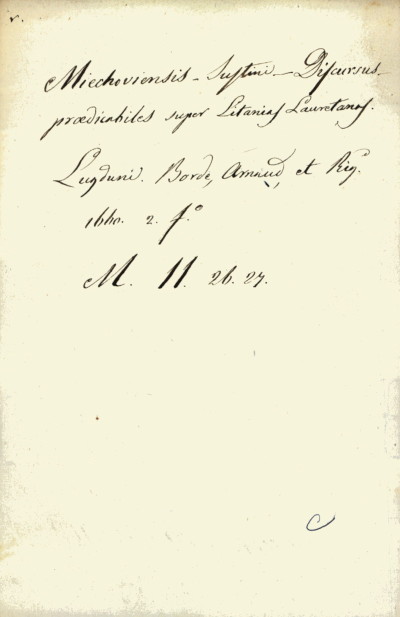 v.
Miechoviensis - Justini - Discursus
prædicabiles super Litanias Lauretanas.
Lugduni. Borde, Arnaud, et Rig.
1660. 2. f.º
M. 11. 26. 27.
C